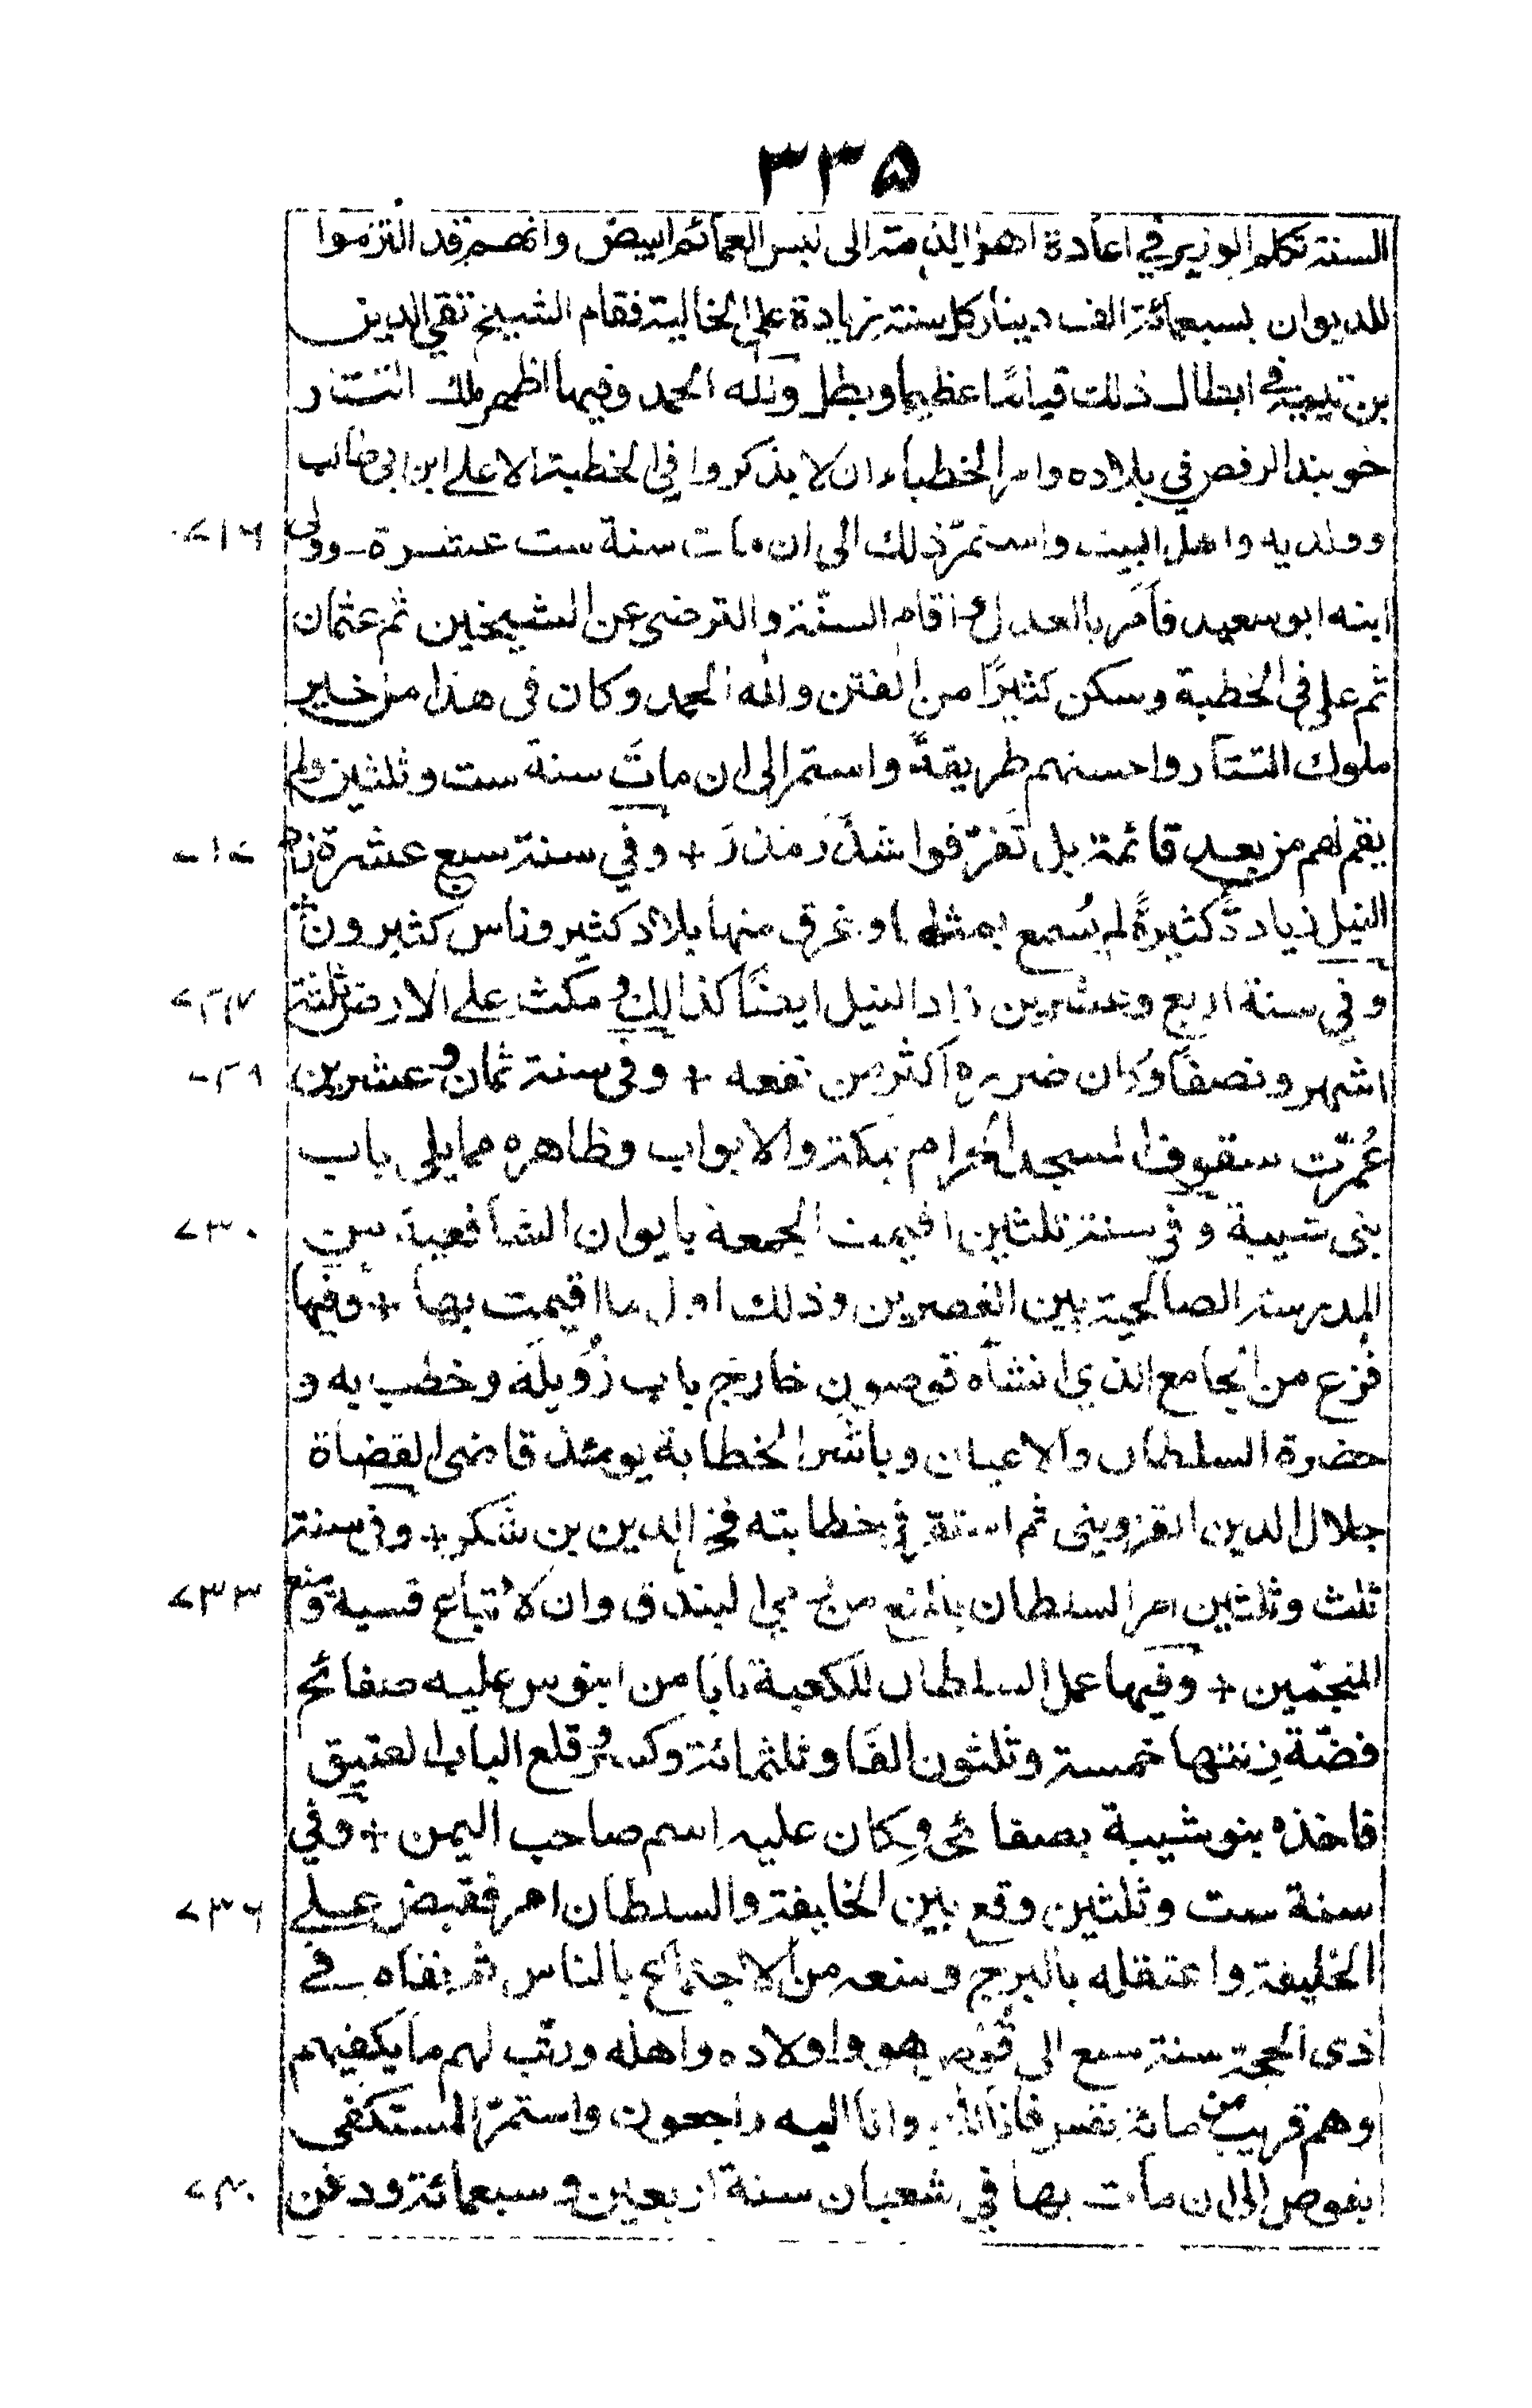 ٣٣٥
السنة تكلم الوزير في اعادة اهل الذمة الى لبس العمائم البيض وانهم قد التزموا
للديوان بسبعمائة الف دينار كل سنة زيادة على الجالية فقام الشيخ تقي الدين
بن تيمية في ابطال ذلك قيامًا عظيما وبطل ولله الحمد وفيها اظهر ملك التتار
خوبندا الرفض في بلاده وامر الخطباء ان لا يذكروا في الخطبة الا علي ابن ابي طالب
وولديه واهل البيت واستمرّ ذلك الى ان مات سنة ست عشرة وولى ٧١٦
ابنه ابو سعيد فأمر بالعدل واقام السنّة والترضى عن الشيخين ثم عثمان
ثم على فى الخطبة وسكن كثيرًا من الفتن ولله الحمد وكان فى هذا من خير
ملوك التتار واحسنهم طريقةً واستمر الى ان مات سنة ست وثلثين ولم
يقم لهم من بعده قائمة بل تفرّقوا شذَرَ مذَرَ + وفي سنة سبع عشرة زاد
النيل زيادةً كثيرةً لم يُسمع بمثلها وغرق منها بلاد كثير وناس كثيرون +
وفي سنة اربع وعشرين زاد النيل ايضًا كذالك ومكث على الارض ثلثة
اشهر ونصفًا وكان ضرره اكثر من نفعه + وفى سنة ثمان وعشرين
عُمّرت سقوف المسجد الحرام بمكة والابواب وظاهره مما يلى باب
بنى شيبة وفى سنة ثلثين اقيمت الجمعة بايوان الشافعية من ٧٣٠
المدرسة الصالحية بين القصرين وذلك اول ما اقيمت بها + وفيها
فُرغ من الجامع الذي انشأه قوصون خارج باب زُوَيلَة وخطب به و
حضرة السلطان والاعيان وباشر الخطابة يومئذ قاضى القضاة
جلال الدين القزوينى ثم استقر في خطابته فخر الدين بن شكر + وفى سنة
ثلث وثلثين امر السلطان بالمنع من رمى البندق وان لا تباع قسيه ومنع ٧٣٣
المنجّمين + وفيها عمل السلطان للكعبة بابا من ابنوس عليه صفائح
فضّة زنتها خمسة وثلثون الفًا وثلثمائة وكسُر قلع الباب العتيق
فاخذه بنو شيبة بصفائحه وكان عليه اسم صاحب اليمن + وفي
سنة ست وثلثين وقع بين الخليفة والسلطان امر فقبض على ٧٣٦
الخليفة واعتقله بالبرج ومنعه من الاجتماع بالناس ثم نفاه في
ذى الحجة سنة سبع الى قُوص هو واولاده واهله ورتّب لهم ما يكفيهم
وهم قريب من مائة نفس فانا لله وانا اليه راجعون واستمرّ المستكفى
بقوص الى ان مات بها في شعبان سنة اربعين وسبعمائة ودفن ٧٤٠